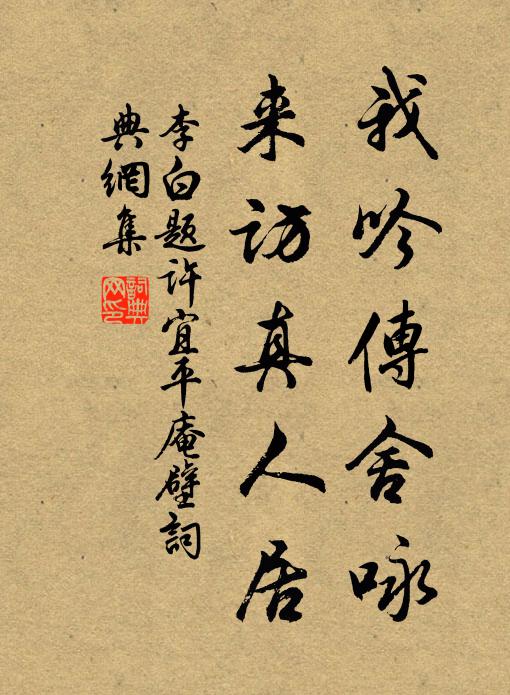 我吟傳舍咏
来訪真人居
李白題許宜平庵壁詞
典網集
詞典網印